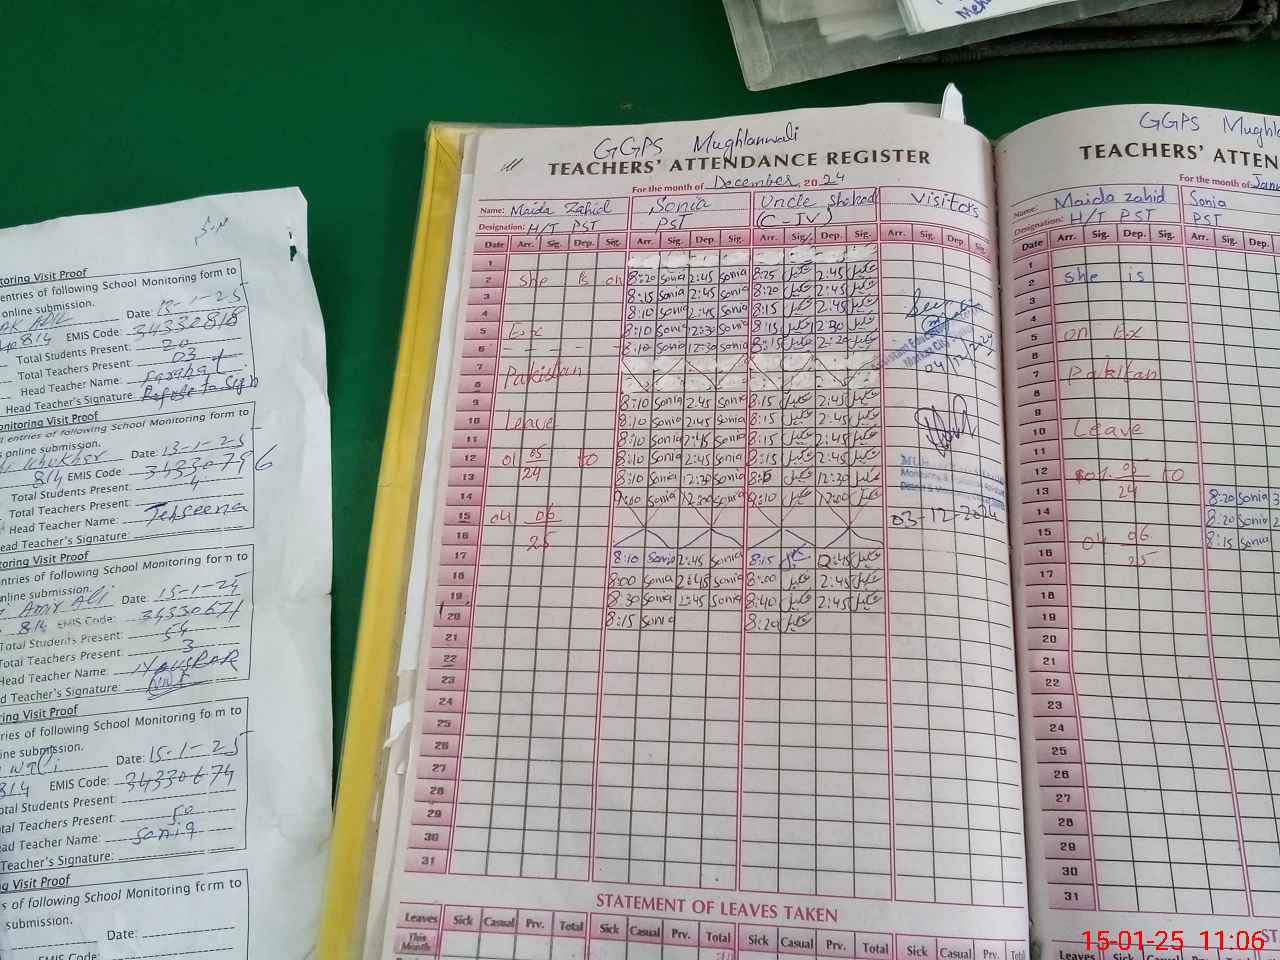 Mehr
toring Visit Proof
entries of following School Monitoring form to
online submission.
Date: 15-1-25
EMIS Code: 34330818
Total Students Present: 20
Total Teachers Present: 03
Head Teacher Name:
Head Teacher's Signature: Refuse to Sign
onitoring Visit Proof
l entries of following School Monitoring form to
s online submission.
Date: 13-1-25
814 EMIS Code: 34330796
Total Students Present: 4
Total Teachers Present:
Head Teacher Name: Tehseena
ead Teacher's Signature:
nitoring Visit Proof
ntries of following School Monitoring form to
nline submission.
Amir Ali Date: 15-1-25
814 EMIS Code: 34330671
Total Students Present: 54
otal Teachers Present: 3
Head Teacher Name:
d Teacher's Signature:
ring Visit Proof
ries of following School Monitoring form to
line submission.
Date: 15-1-25
814 EMIS Code: 34330674
otal Students Present:
tal Teachers Present: 50
ead Teacher Name: Sonia
Teacher's Signature:
g Visit Proof
s of following School Monitoring form to
submission.
Date:
EMIS Code:
GGPS Mughlanwali
TEACHERS' ATTENDANCE REGISTER
For the month of December, 2024
Name: Maida Zahid Sonia Uncle Shakeel Visitors
Designation: H/T PST PST (C-IV)
Date Arr. Sig. Dep. Sig. Arr. Sig. Dep. Sig. Arr. Sig. Dep. Sig. Arr. Sig. Dep. Sig.
1
2 She is on 8:20 Sonia 2:45 Sonia 8:25 شکیل 2:45 شکیل
3 8:15 Sonia 2:45 Sonia 8:20 شکیل 2:45 شکیل
4 8:10 Sonia 2:45 Sonia 8:15 شکیل 2:45 شکیل
5 Ex 8:10 Sonia 12:30 Sonia 8:15 شکیل 2:30 شکیل
6 8:10 Sonia 12:30 Sonia 8:15 شکیل 2:20 شکیل
04/12/2024
7 Pakistan
8
9 8:10 Sonia 2:45 Sonia 8:15 شکیل 2:45 شکیل
10 Leave 8:10 Sonia 2:45 Sonia 8:15 شکیل 2:45 شکیل
11 8:10 Sonia 2:45 Sonia 8:15 شکیل 2:45 شکیل
12 01 05 to 8:10 Sonia 2:45 Sonia 8:15 شکیل 2:45 شکیل
13 24 8:10 Sonia 12:30 Sonia 8:15 شکیل 12:30 شکیل
14 9:00 Sonia 12:00 Sonia 9:10 شکیل 12:00 شکیل
15 04 06 03-12-2024
16 25
17 8:10 Sonia 2:45 Sonia 8:15 2:45 شکیل
18 8:00 Sonia 2:45 Sonia 8:00 شکیل 2:45 شکیل
19 8:30 Sonia 2:45 Sonia 8:40 شکیل 2:45 شکیل
20 8:15 Sonia 8:20 شکیل
21
22
23
24
25
26
27
28
29
30
31
STATEMENT OF LEAVES TAKEN
Leaves Sick Casual Prv. Total Sick Casual Prv. Total Sick Casual Prv. Total Sick Casual Prv. Total
This Month
GGPS Mughl
TEACHERS' ATTEN
For the month of Janu
Name: Maida Zahid Sonia
Designation: H/T PST PST
Date Arr. Sig. Dep. Sig. Arr. Sig. Dep.
1
2 She is
3
4
5 on Ex
6
7 Pakistan
8
9
10 Leave
11
12 01 05 to
13 24 8:20 Sonia
14 8:20 Sonia
15 04 06 8:15 Sonia
16 25
17
18
19
20
21
22
23
24
25
26
27
28
29
30
31
STA
Leaves Sick Casual Prv. Total Sick Casual
15-01-25 11:06